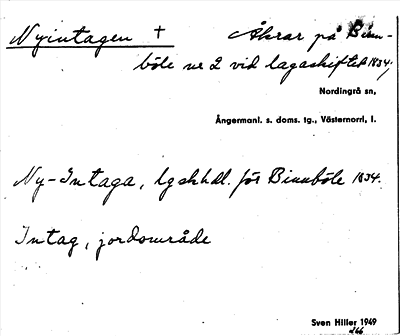 Nyintagen +
Åkrar på Binn-
böle nr 2 vid lagaskiftet 1834,
Nordingrå sn,
Ångermanl. s. doms. tg., Västernorrl, l.
Ny-Intaga, lgskhdl. för Binnböle 1834.
Intag, jordområde
Sven Hiller 1949
266